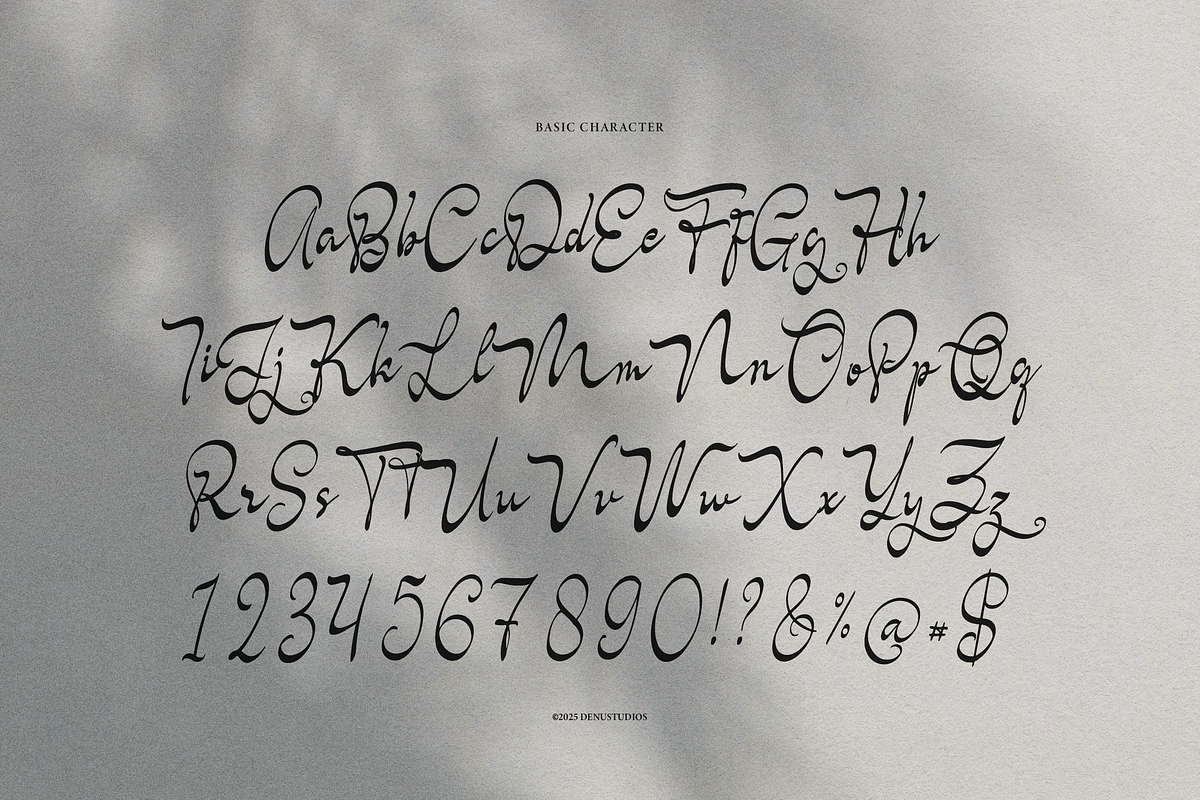 BASIC CHARACTER
AaBbCcDdEeFfGgHh
IiJjKkLlMmNnOoPpQq
RrSsTtUuVvWwXxYyZz
1234567890!?&%@#$
©2025 DENUSTUDIOS